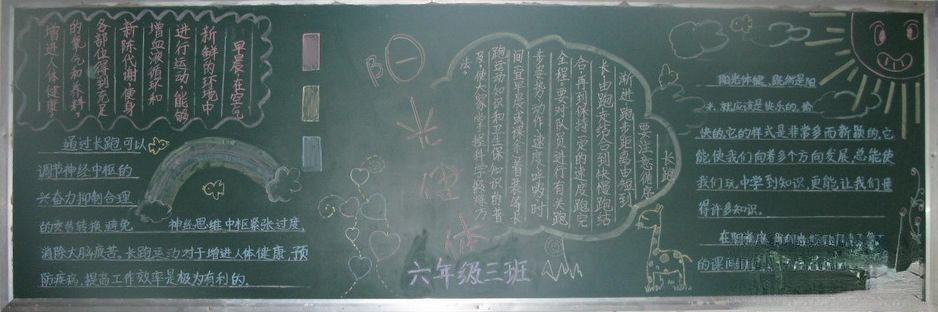 早晨在空气
新鲜的环境中
进行运动，能够
增血液循环和
新陈代谢，使身
各部位得到充足
的氧气和养料，
增进人体健康
通过长跑可以
调节神经中枢的
兴奋力抑制合理
的交替转换避免
神经思维中枢紧张过度，
消除大脑疲劳。长跑运动对于增进人体健康，预
防疾病，提高工作效率是极为有利的。
阳光体健
六年级三班
长跑
要注意循序
渐进，跑步距离由短到
长由跑走结合到快慢跑结
合，再到保持一定的速度跑完
全程要对队员进行有关跑
步姿势、动作、速度、呼吸、时
间宜早晨或课外、着装等长
跑运动知识和卫生保健知识的普
及，使大家掌握科学锻炼方
法。
阳光体健，既然是阳
光，就应该是快乐的，愉
快的，它的样式是非常多而新颖的，它
能使我们向着多个方向发展，总能使
我们玩中学到知识，更能让我们懂
得许多知识。
在阳光
的课